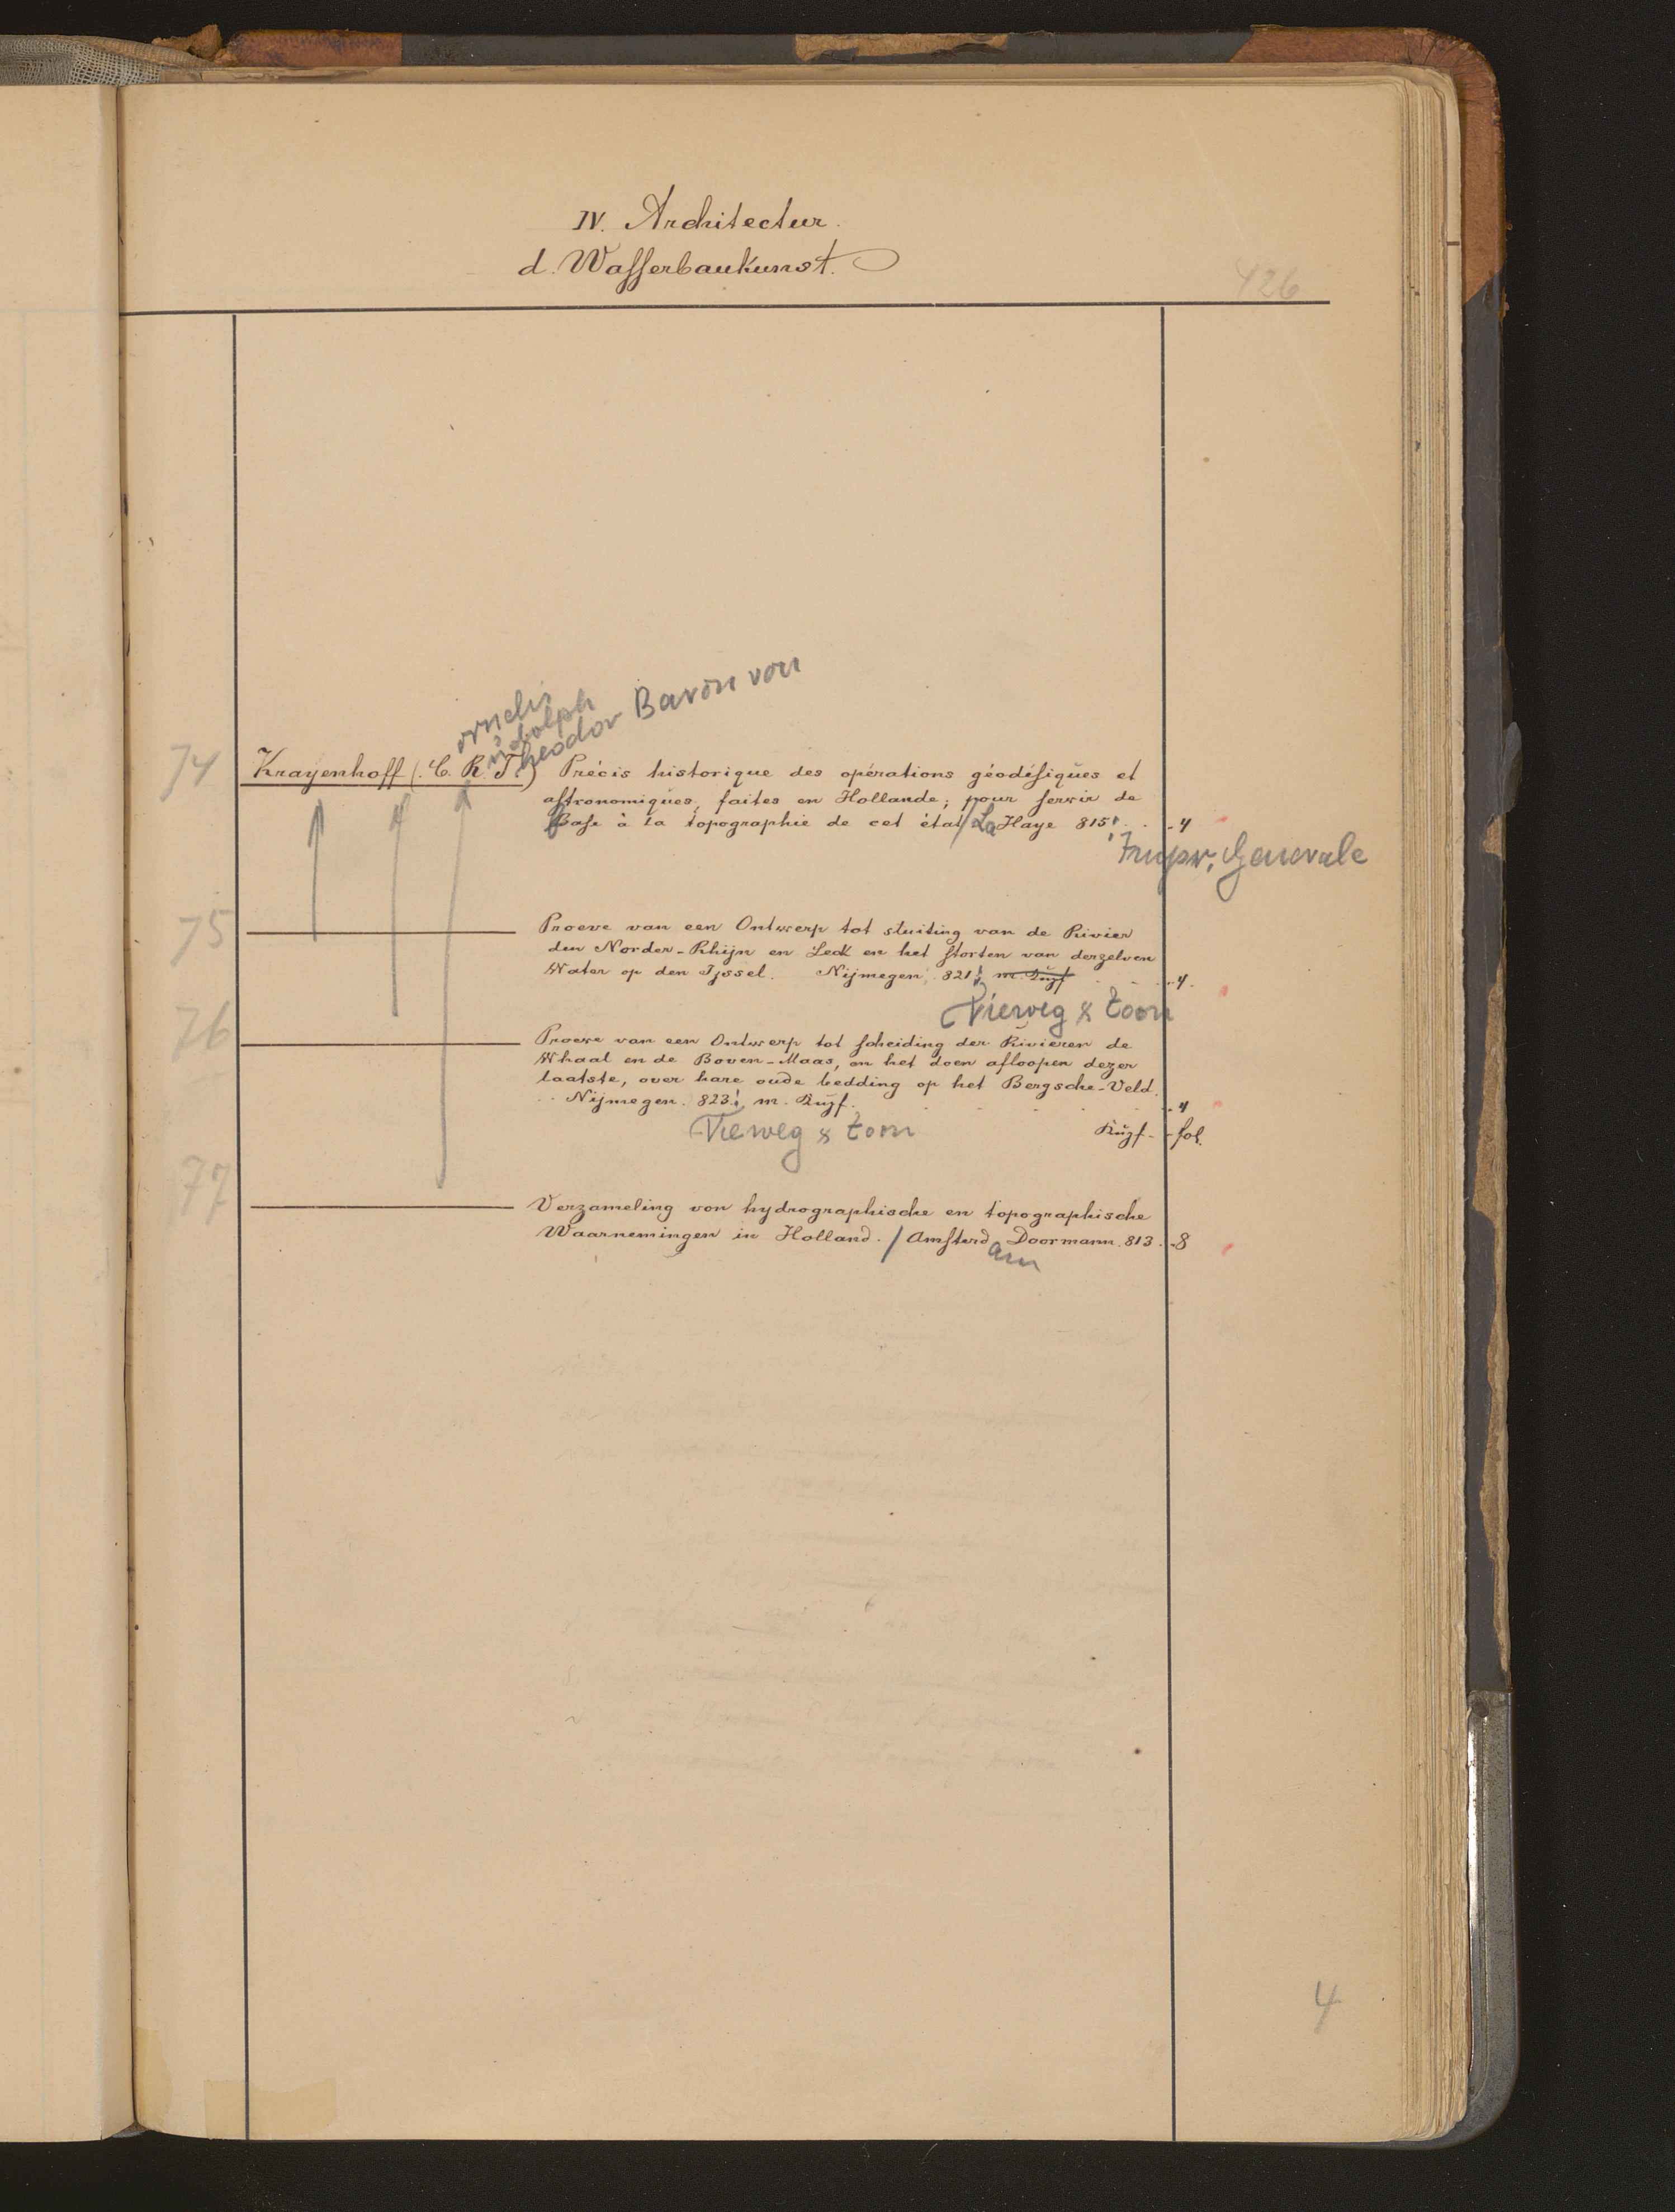 IV. Architectur.
d. Wasserbaukunst.
426
ornelis
udolph
heodor Baron von
74 Krayenhoff (C. R. T.) Précis historique des opérations géodésiques et
astronomiques, faites en Hollande; pour servir de
Base à la topographie de cet état / La Haye 815 . . 4
Impr. Generale
75 Proeve van een Ontwerp tot sluiting van de Rivier
den Norder-Rhijn en Leck en het storten van derzelven
Water op den Ijssel. Nijmegen. 821 m. Kupf . . 4.
Vieweg & Zoon
76 Proeve van een Ontwerp tot scheiding der Rivieren de
Whaal en de Boven-Maas, en het doen afloopen dezer
laatste, over hare oude bedding op het Bergsche-Veld.
Nijmegen. 823. m. Kupf. . . . 4
Vieweg & Zoon Kupf. - fol.
77 Verzameling von hydrographische en topographische
Waarnemingen in Holland. / Amsterd Doormann. 813. 8
am
4